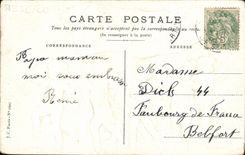 CARTE POSTALE
Tous les pays étrangers n'acceptent pas la correspondance au recto.
(Se renseigner à la poste)
CORRESPONDANCE
ADRESSE
Papa maman
moi vous embrasse
René
Madame
Dick 44
Faubourg de France
Belfort